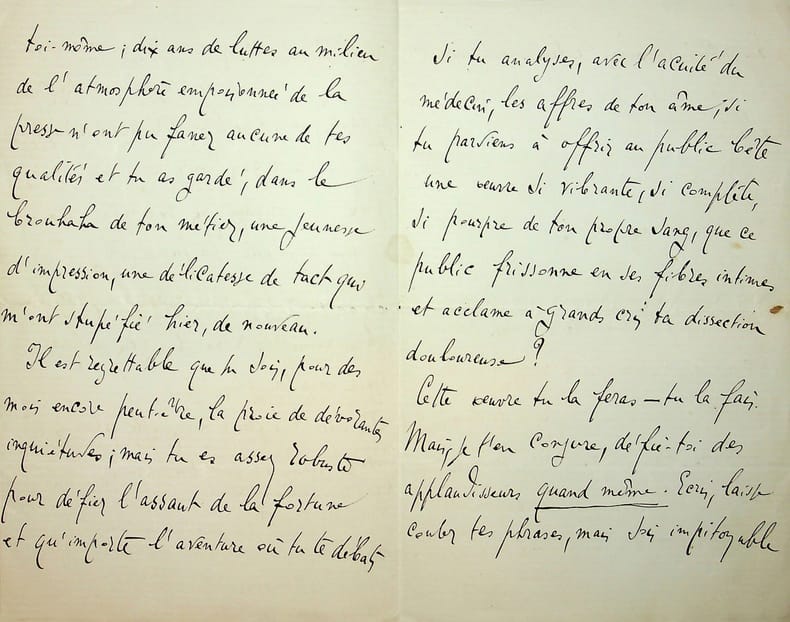 toi-même ; dix ans de luttes au milieu
de l'atmosphère empoisonnée de la
presse n'ont pu faner aucune de tes
qualités et tu as gardé, dans le
brouhaha de ton métier, une jeunesse
d'impression, une délicatesse de tact qui
m'ont stupéfié hier, de nouveau.
Il est regrettable que tu sois, pour des
mois encore peut-être, la proie de dévorantes
inquiétudes ; mais tu es assez robuste
pour défier l'assaut de la fortune
et qu'importe l'aventure où tu te débats
si tu analyses, avec l'acuité du
médecin, les affres de ton âme ; si
tu parviens à offrir au public bête
une œuvre si vibrante, si complète,
si pourpre de ton propre sang, que ce
public frissonne en ses fibres intimes
et acclame à grands cris ta dissection
douloureuse ?
Cette œuvre tu la feras — tu la fais.
Mais, je t'en conjure, défie-toi des
applaudisseurs quand même. Ecris, laisse
couler tes phrases, mais sois impitoyable